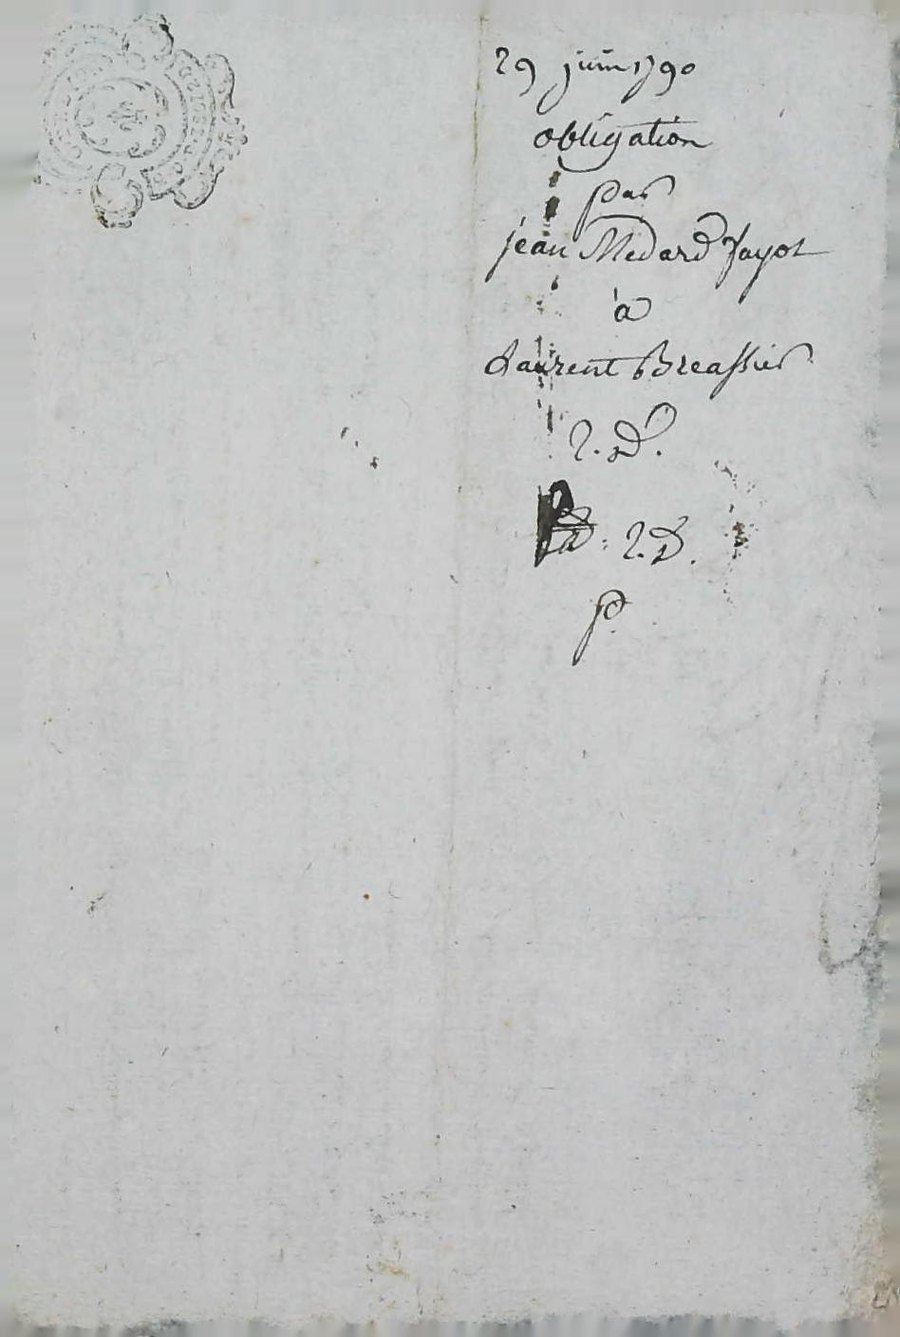 29 juin 1790
obligation
par
jean Medard fayot
à
Laurent Breassier
2. D.
2. D.
P.